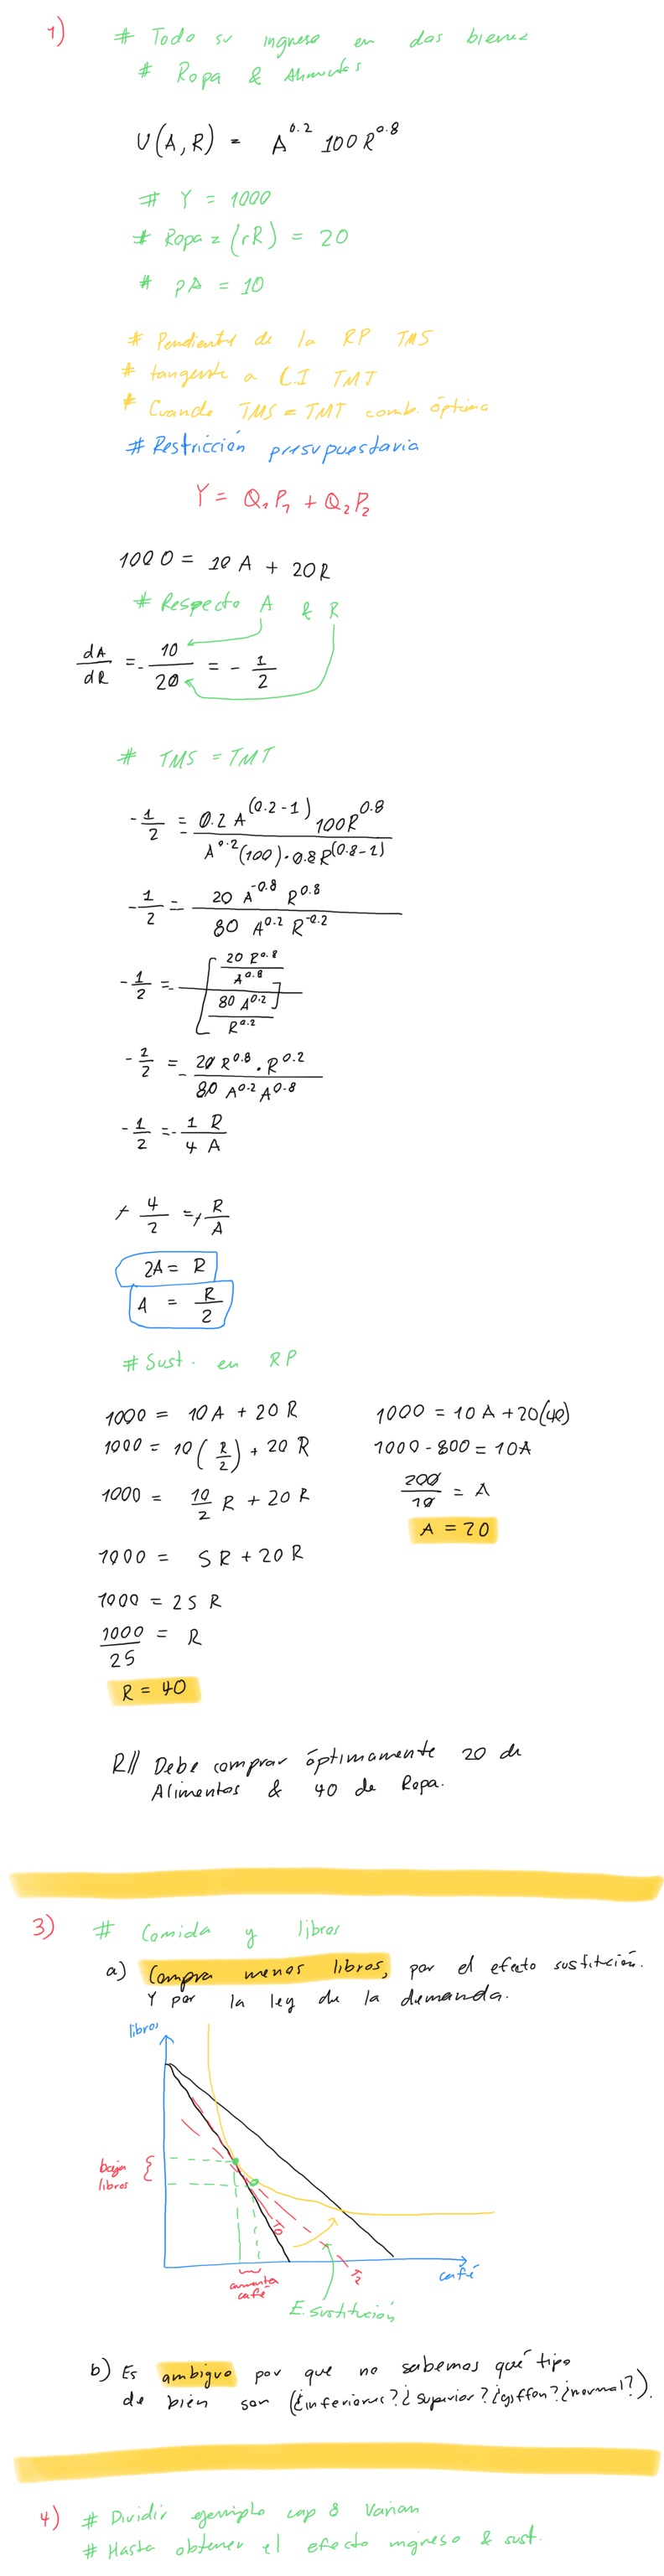 1) # Todo su ingreso en dos bienes
# Ropa & Alimentos
U(A,R) = A^0.2 100R^0.8
# Y = 1000
# Ropa = (rR) = 20
# pA = 10
# Pendiente de la RP TMS
# tangente a C.I TMT
# Cuando TMS = TMT comb. óptima
# Restricción presupuestaria
Y = Q₁P₁ + Q₂P₂
1000 = 10A + 20R
# Respecto A & R
dA/dR = -10/20 = -1/2
# TMS = TMT
-1/2 = -0.2A^(0.2-1) 100R^0.8 / A^0.2(100)·0.8R^(0.8-1)
-1/2 = -20 A^-0.8 R^0.8 / 80 A^0.2 R^-0.2
-1/2 = -[(20 R^0.8 / A^0.8) / (80 A^0.2 / R^0.2)]
-1/2 = -20 R^0.8 · R^0.2 / 80 A^0.2 A^0.8
-1/2 = -1 R / 4 A
-4/2 = -R/A
2A = R
A = R/2
# Sust. en RP
1000 = 10A + 20R
1000 = 10(R/2) + 20R
1000 = 10/2 R + 20R
1000 = 5R + 20R
1000 = 25R
1000/25 = R
R = 40
1000 = 10A + 20(40)
1000 - 800 = 10A
200/10 = A
A = 20
R// Debe comprar óptimamente 20 de
Alimentos & 40 de Ropa.
3) # Comida y libros
a) Compra menos libros, por el efecto sustitución.
Y por la ley de la demanda.
libros
baja
libros
aumenta
café
café
E. sustitución
b) Es ambiguo por que no sabemos qué tipo
de bien son (¿inferiores? ¿superior? ¿giffen? ¿normal?).
4) # Dividir ejemplo cap 8 Varian
# Hasta obtener el efecto ingreso & sust.